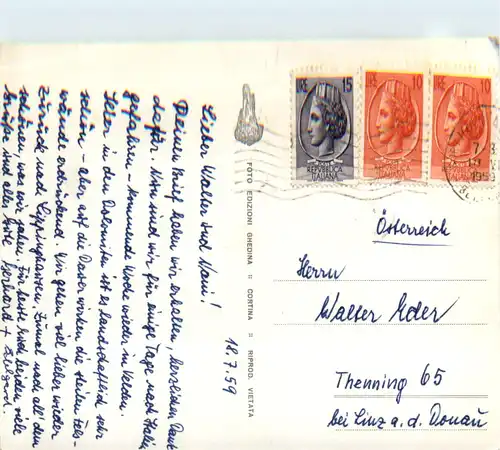 18.7.59
Lieber Walter und Mani!
Deinen Brief haben wir erhalten, herzlichen Dank
dafür. Nun sind wir für einige Tage nach Italien
gefahren – kommende Woche wieder in Velden.
Hier in den Dolomiten ist es landschaftlich sehr
schön – aber auf die Dauer wirken die steilen Fels-
wände erdrückend. Wir gehen viel lieber wieder
zurück nach
schönen, was wir sahen. Für heute Euch beiden viele
Grüße und alles Gute Gerhard +
FOTO EDIZIONI GHEDINA = CORTINA = RIPROD. VIETATA
LIRE 15
REPUBBLICA
ITALIANA
LIRE 10
REPUBBLICA
ITALIANA
LIRE 10
1959
Österreich
Herrn
Walter Eder
Thenning 65
bei Linz a. d. Donau